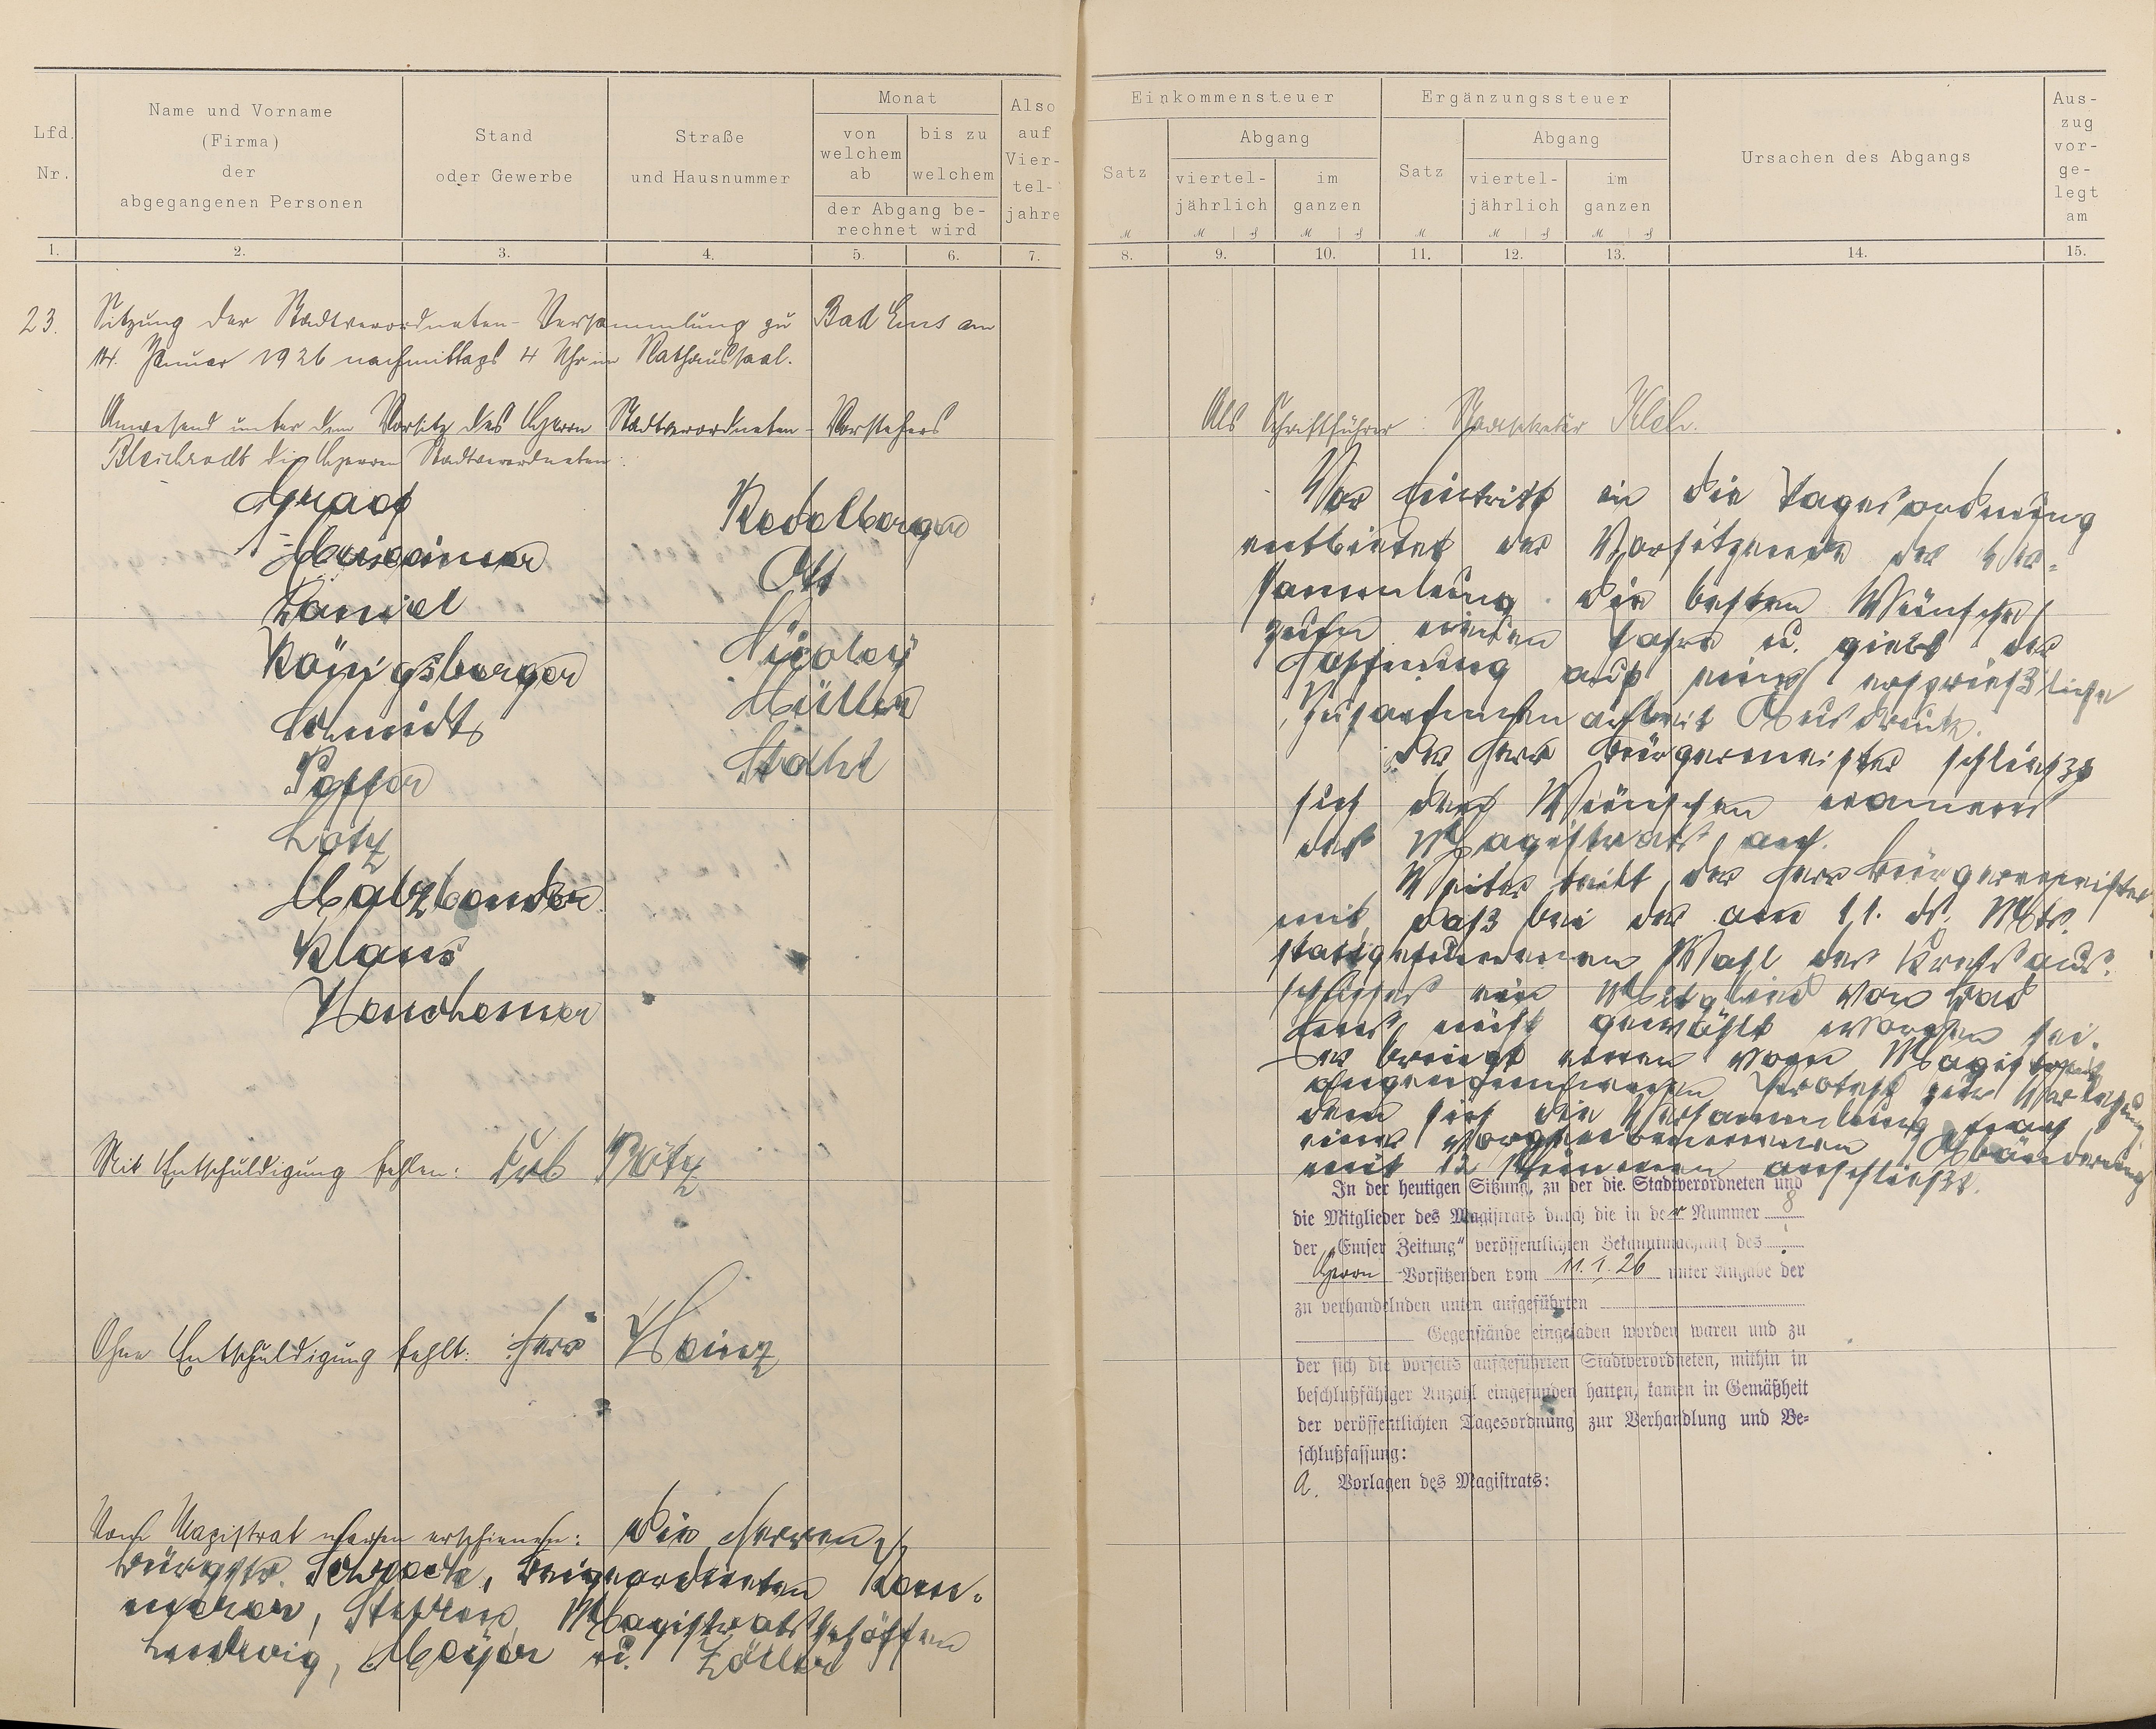 Lfd.
Nr.
Name und Vorname
(Firma)
der
abgegangenen Personen
Stand
oder Gewerbe
Straße
und Hausnummer
Monat
von
welchem
ab
bis zu
welchem
der Abgang be-
rechnet wird
Also
auf
Vier-
tel-
jahre
1.
2.
3.
4.
5.
6.
7.
23.
Sitzung der Stadtverordneten-Versammlung zu Bad Ems am
14. Januar 1926 nachmittags 4 Uhr im Rathaussaal.
Anwesend unter dem Vorsitz des Herrn Stadtverordneten-Vorstehers
Bleichrodt die Herren Stadtverordneten:
Graef
Daniel
Königsberger
Schmidt
Lotz
Malzbender
Klaus
Ott
Nicolay
Müller
Stahl
Mit Entschuldigung fehlen:
Ohne Entschuldigung fehlt: Herr Heinz
Vom Magistrat waren erschienen: Die Herren
Bürgstr. Beigeordneten Kom-
Magistratsschöffen
Ludwig, Meyer u. Zöller
Einkommensteuer
Satz
Abgang
viertel-
jährlich
im
ganzen
Ergänzungssteuer
Satz
Abgang
viertel-
jährlich
im
ganzen
Ursachen des Abgangs
Aus-
zug
vor-
ge-
legt
am
8.
9.
10.
11.
12.
13.
14.
15.
Als Schriftführer: Stadtsekretär
Vor Eintritt in die Tagesordnung
entbietet der Vorsitzende der Ver-
sammlung die besten Wünsche
zum neuen Jahre u. giebt der
Hoffnung auf eine ersprießliche
Zusammenarbeit Ausdruck.
Der Herr Bürgermeister schließt
sich den Wünschen namens
des Magistrats an.
Weiter teilt der Herr Bürgermeister
mit, daß bei der am 11. ds. Mts.
stattgefundenen Wahl des Kreisaus-
schusses ein Mitglied von Bad
Ems nicht gewählt worden sei.
Er bringt einen vom Magistrat
angenommenen Protest zur Verlesung,
dem sich die Versammlung nach
einer vorgenommenen Abänderung
mit 12 Stimmen anschließt.
In der heutigen Sitzung, zu der die Stadtverordneten und
die Mitglieder des Magistrats durch die in der Nummer 8
der „Emser Zeitung" veröffentlichten Bekanntmachung des
Herrn Vorsitzenden vom 11.1.26 unter Angabe der
zu verhandelnden unten aufgeführten
Gegenstände eingeladen worden waren und zu
der sich die vorseits aufgeführten Stadtverordneten, mithin in
beschlußfähiger Anzahl eingefunden hatten, kamen in Gemäßheit
der veröffentlichten Tagesordnung zur Verhandlung und Be-
schlußfassung:
A. Vorlagen des Magistrats: